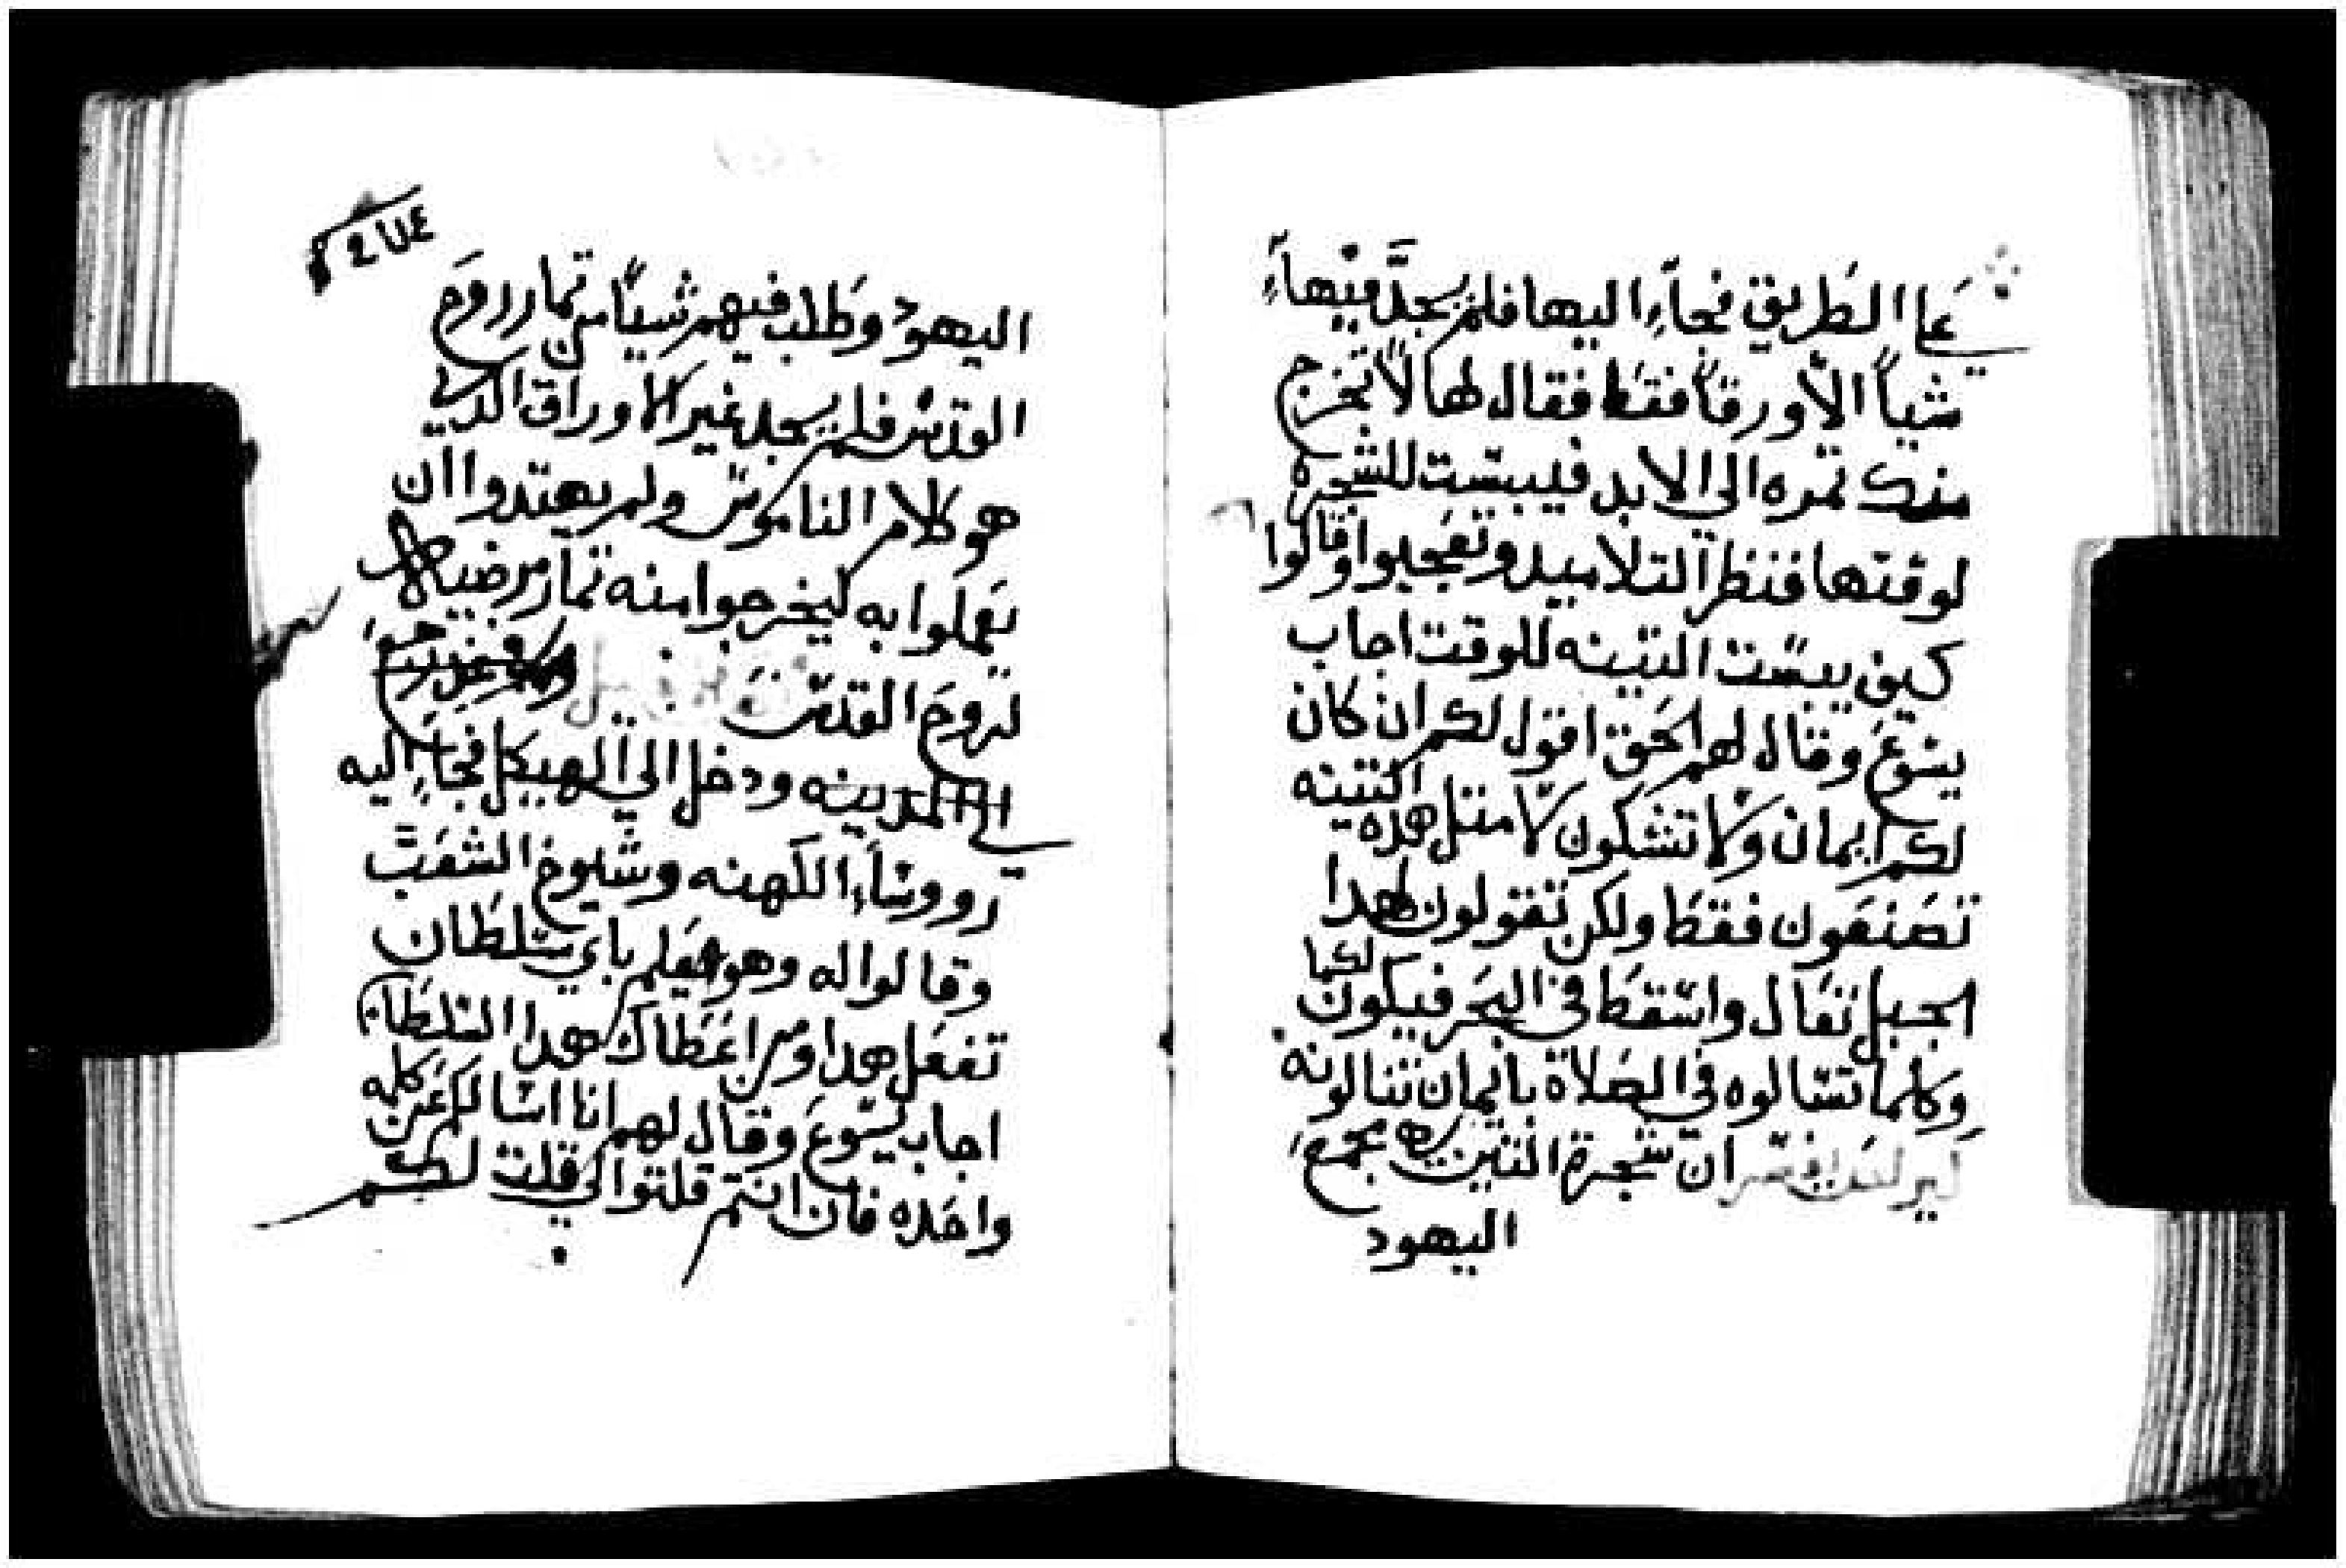 علي الطريق فجاء اليها فلم يجد فيها
شياً الا ورقاً فقط فقال لها لا تخرج
منك ثمره الي الابد فيبست للشجره
لوقتها فنظر التلاميد وتعجبوا وقالوا
كيف يبست التينه للوقت اجاب
يسوع وقال لهم الحق اقول لكم ان كان
لكم ايمان ولا تشكون لا مثل هده التينه
تصنعون فقط ولكن تقولون لهدا
الجبل تعال واسقط في البحر فيكون لكما
وكلما تسالوه في الصلاة بايمان تنالونه
ان شجرة التين هي مجمع
اليهود
اليهود وطلب فيهم شياً من ثمار روح
القدس فلم يجد غير الاوراق الدي
هو كلام الناموس ولم يهتدوا ان
يعملوا به ليخرجوا منه ثمار مرضياً
لروح القدس
الي المدينه ودخل الي الهيكل فجاء اليه
رووساء الكهنه وشيوخ الشعب
وقالوا له وهو يعلم باي سلطان
تفعل هدا ومن اعطاك هدا السلطان
اجاب يسوع وقال لهم انا اسالكم عن كلمه
واحده فان انتم قلتوا لي قلت لكم